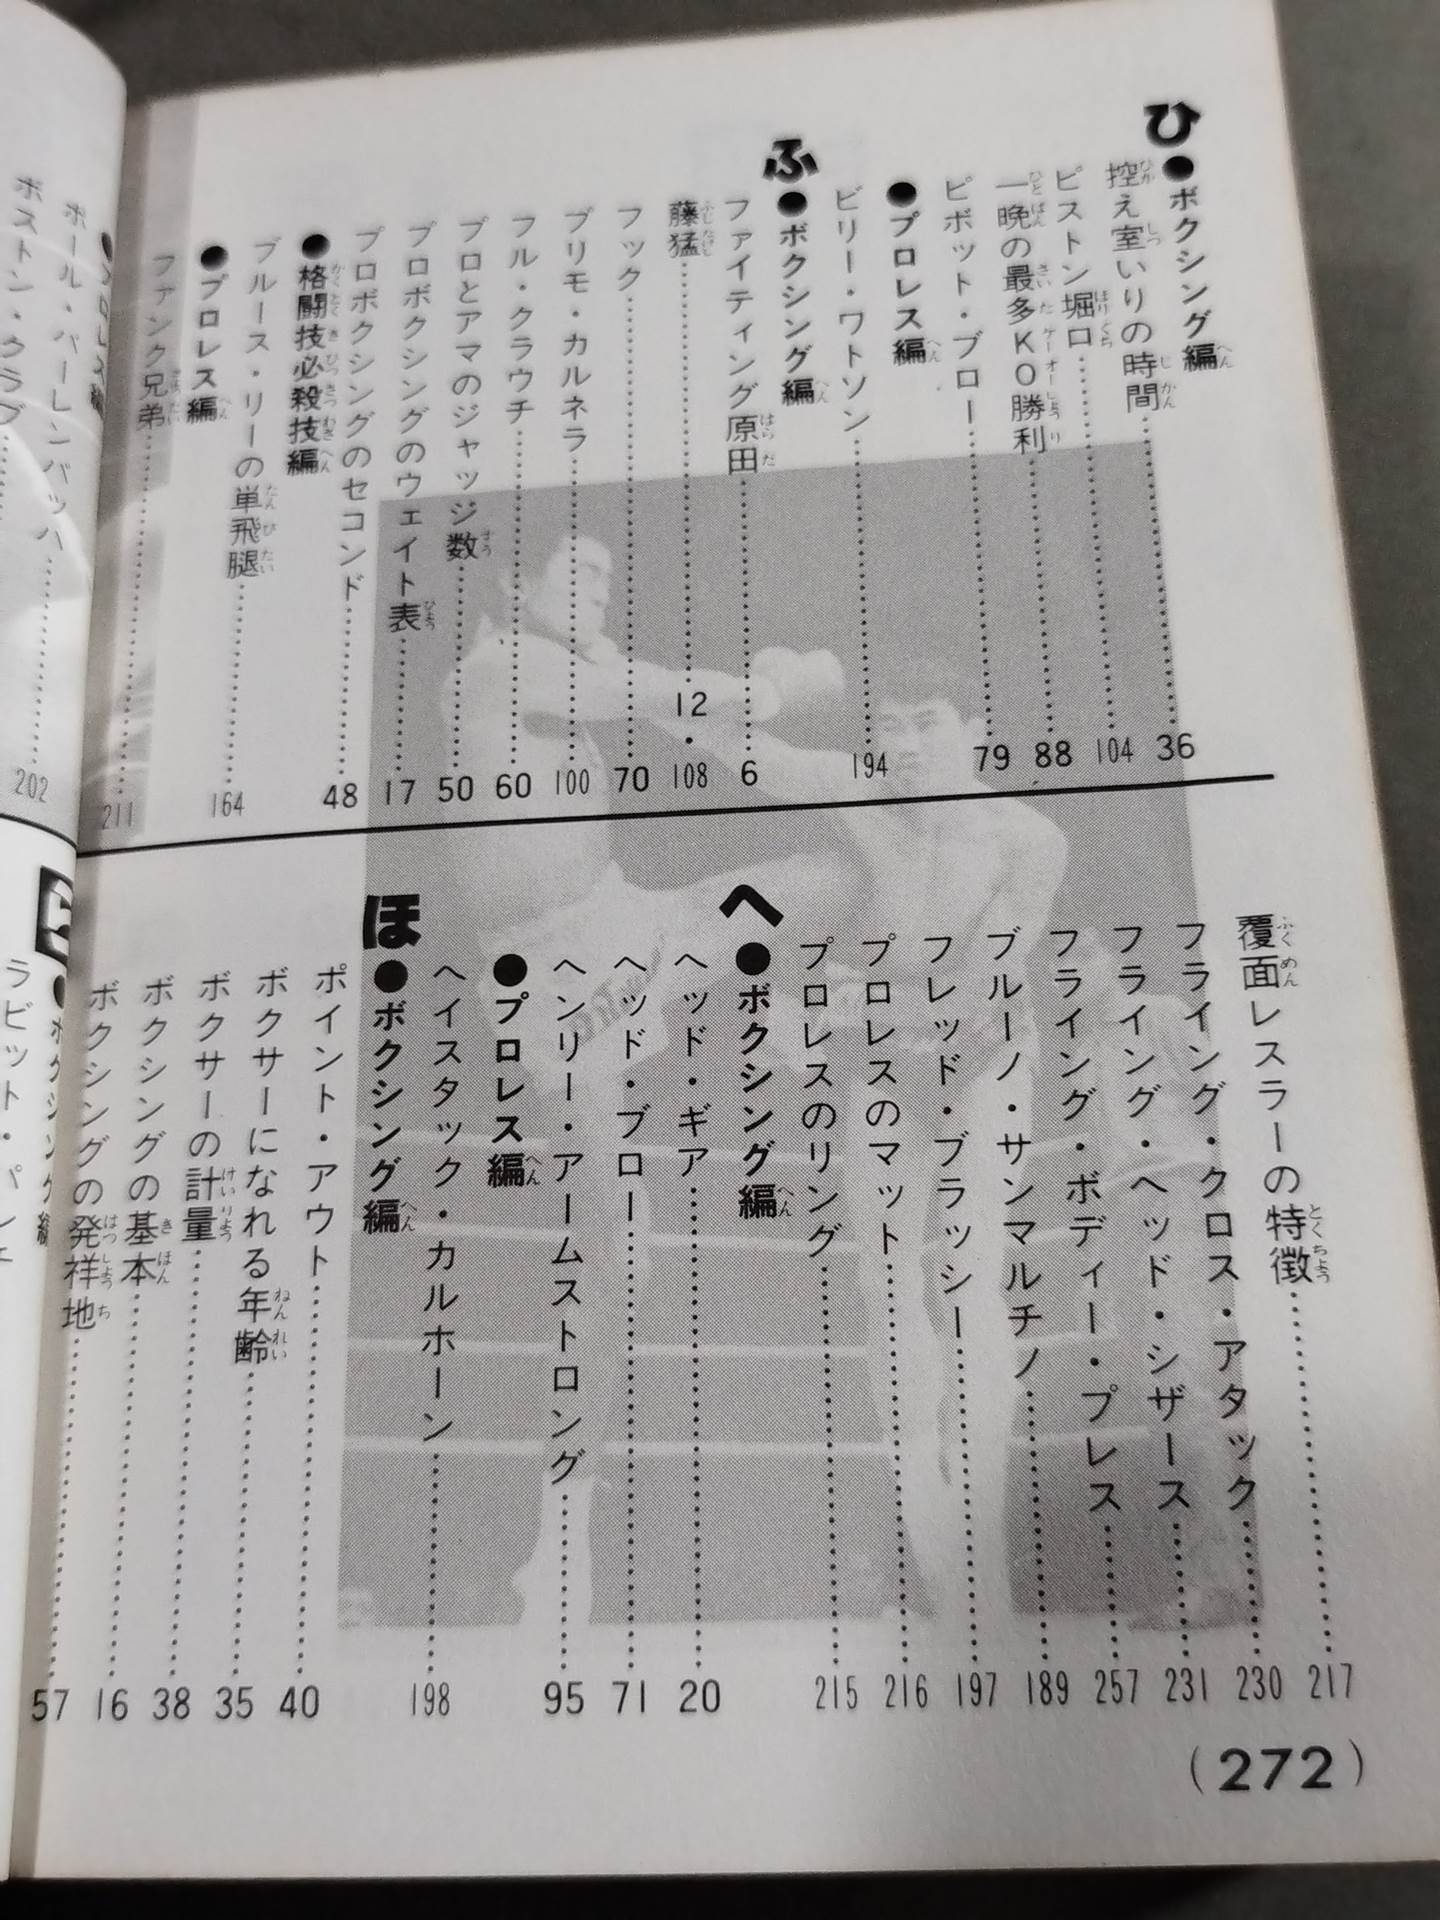 ひ
●ボクシング編
控え室いりの時間 36
ピストン堀口 104
一晩の最多KO勝利 88
ピボット・ブロー 79
●プロレス編
ビリー・ワトソン 194
ふ
●ボクシング編
ファイティング原田 6
藤猛 12・108
フック 70
プリモ・カルネラ 100
フル・クラウチ 60
プロとアマのジャッジ数 50
プロボクシングのウェイト表 17
プロボクシングのセコンド 48
●格闘技必殺技編
ブルース・リーの単飛腿 164
●プロレス編
ファンク兄弟 211
覆面レスラーの特徴 217
フライング・クロス・アタック 230
フライング・ヘッド・シザース 231
フライング・ボディー・プレス 257
ブルーノ・サンマルチノ 189
フレッド・ブラッシー 197
プロレスのマット 216
プロレスのリング 215
へ
●ボクシング編
ヘッド・ギア 20
ヘッド・ブロー 71
ヘンリー・アームストロング 95
●プロレス編
ヘイスタック・カルホーン 198
ほ
●ボクシング編
ポイント・アウト 40
ボクサーになれる年齢 35
ボクサーの計量 38
ボクシングの基本 16
ボクシングの発祥地 57
(272)
●プロレス編
ポール・バーレンバッハ 202
ボストン・クラブ